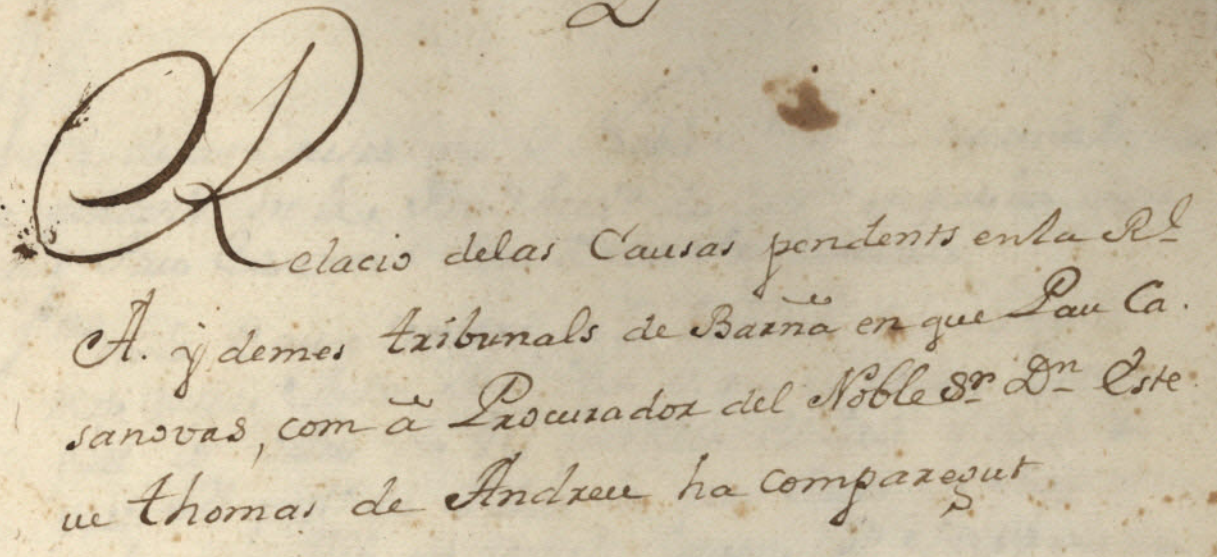 Relacio delas Causas pendents en la Rl
A. y demes tribunals de Barña en que Pau Ca.
sanovas, com â Procurador del Noble Sr Dn Este
ve thomas de Andreu ha comparegut